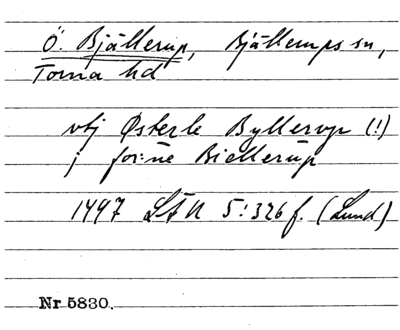 Ö. Bjällerup, Bjällerups sn,
Torna hd
vtj Østerle Byllerop (!)
j for:ne Biellerup
1497 LÄU 5:326 f. (Lund)
Nr 5830.